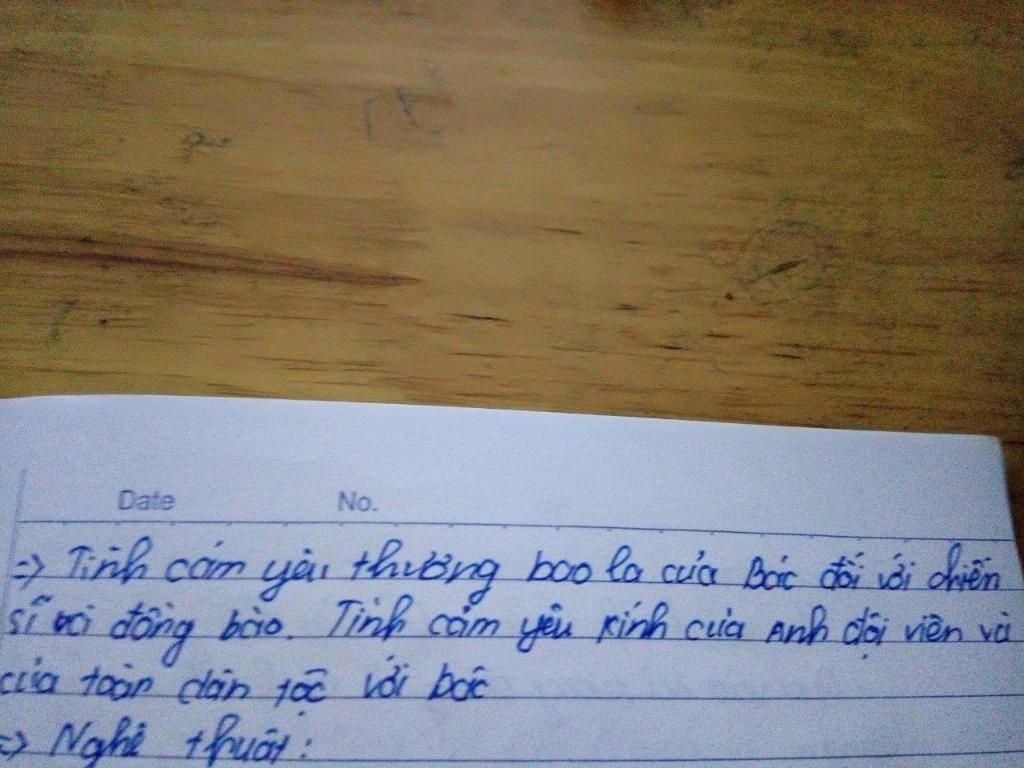 Date No.
=> Tình cảm yêu thương bao la của Bác đối với chiến
sĩ và đồng bào. Tình cảm yêu kính của Anh đội viên và
của toàn dân tộc với bác
=> Nghệ thuật: